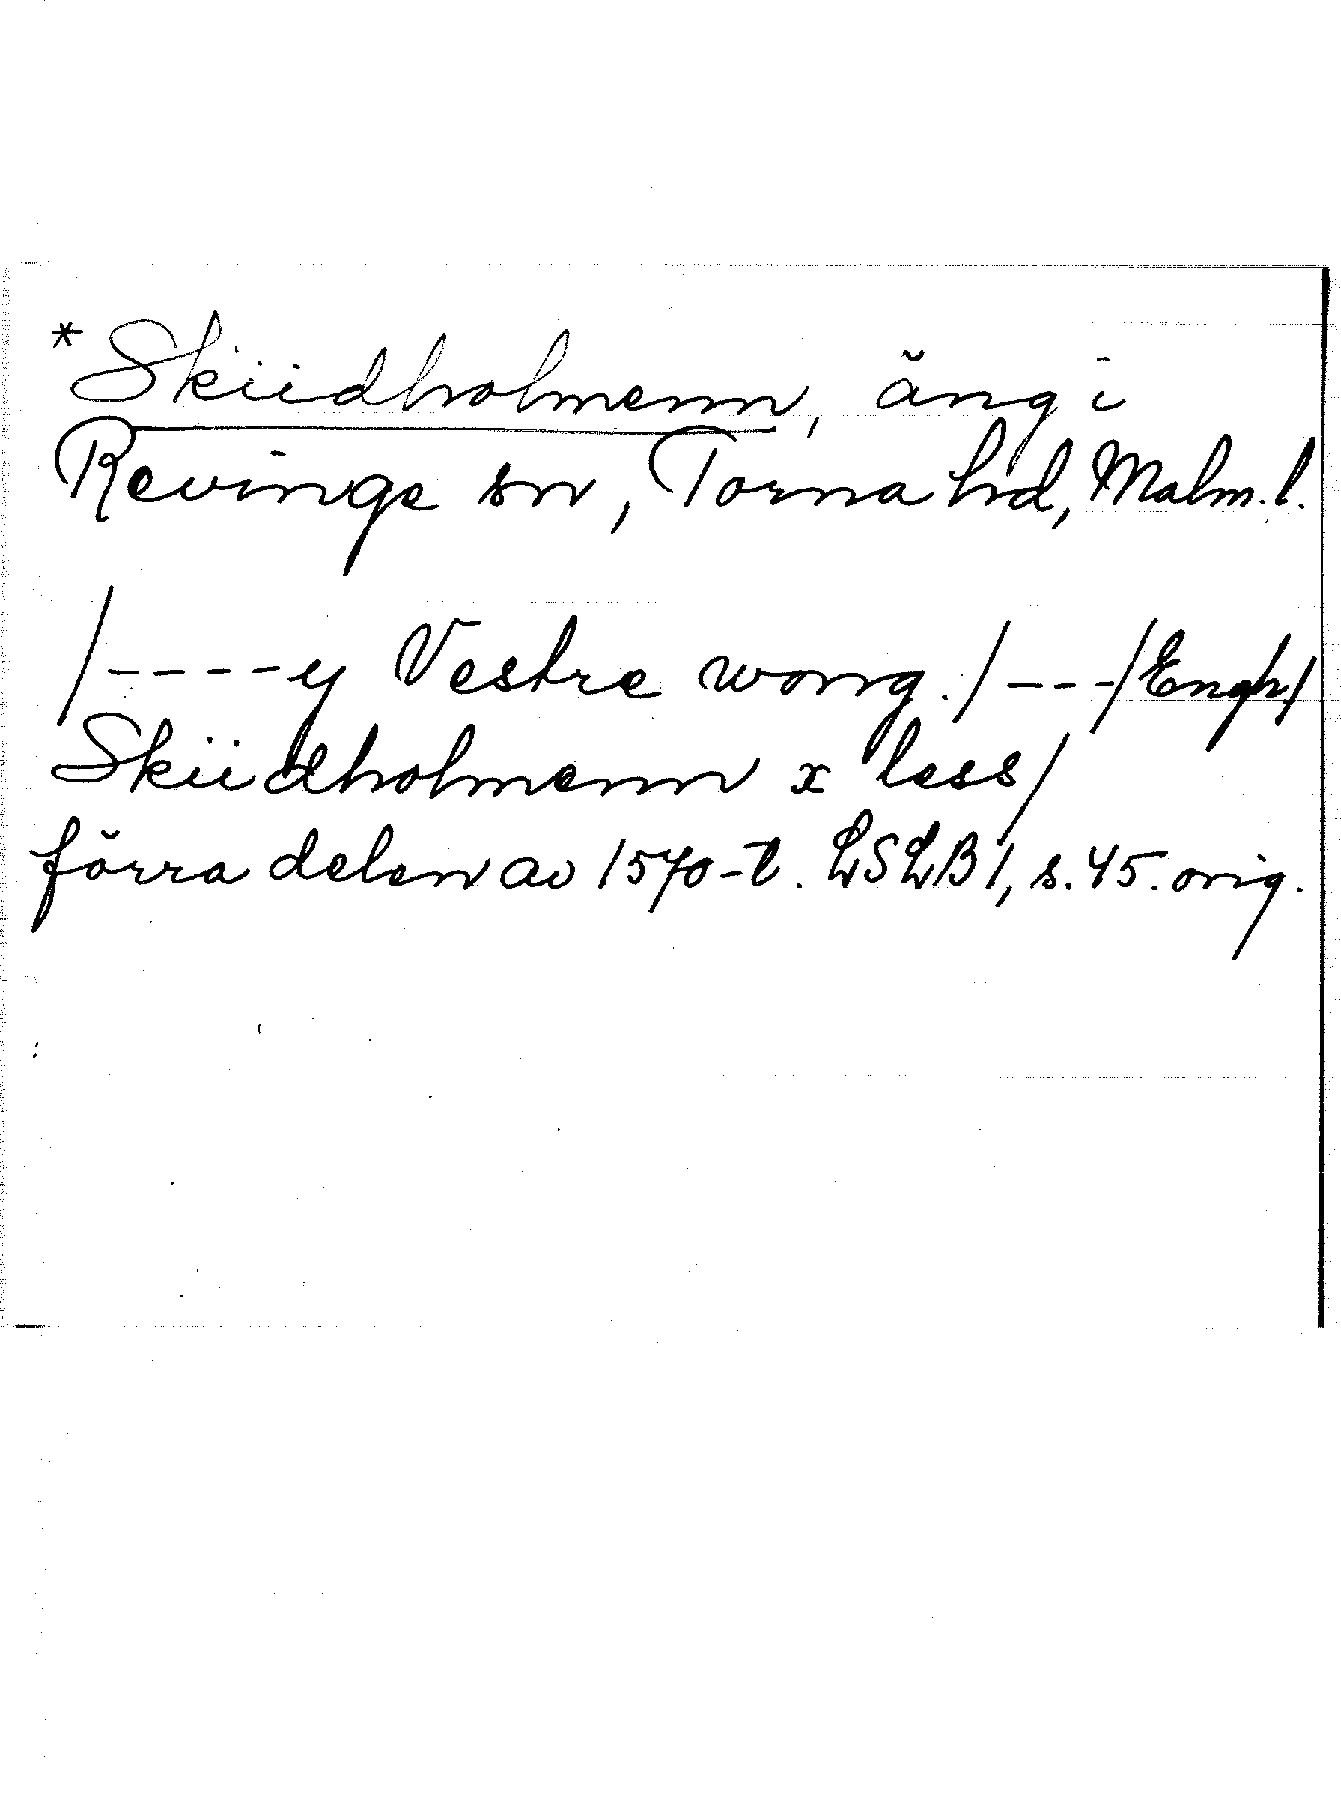 *Skiidholmenn, äng i
Revinge sn, Torna hd, Malm. l.
/----y Vestre wong./---/Engh/
Skiidholmenn x less/
förra delen av 1570-t. LSLB1, s.45. orig.